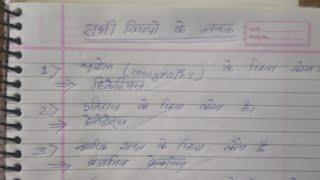 सभी विषयो के जनक
1) भूगोल (Geography) के पिता कौन
⇒ हिकैटियस
2) इतिहास के पिता कौन है।
⇒ हेरोडोट्स
3) नागरिक शास्त्र के पिता कौन है
⇒ बेंजामिन फ्रेंकलिन